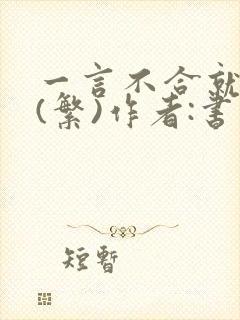 一言不合就
(繁)作者:書
短暫